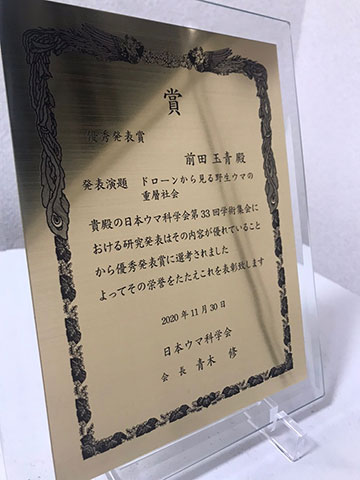 賞
優秀発表賞
前田 玉青 殿
発表演題 ドローンから見る野生ウマの
重層社会
貴殿の日本ウマ科学会第33回学術集会に
おける研究発表はその内容が優れていること
から優秀発表賞に選考されました
よってその栄誉をたたえこれを表彰致します
2020年11月30日
日本ウマ科学会
会長 青木 修